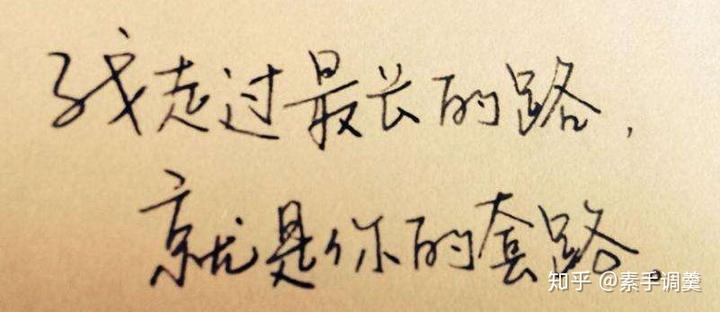 我走过最长的路,
就是你的套路。
知乎 @素手调羹